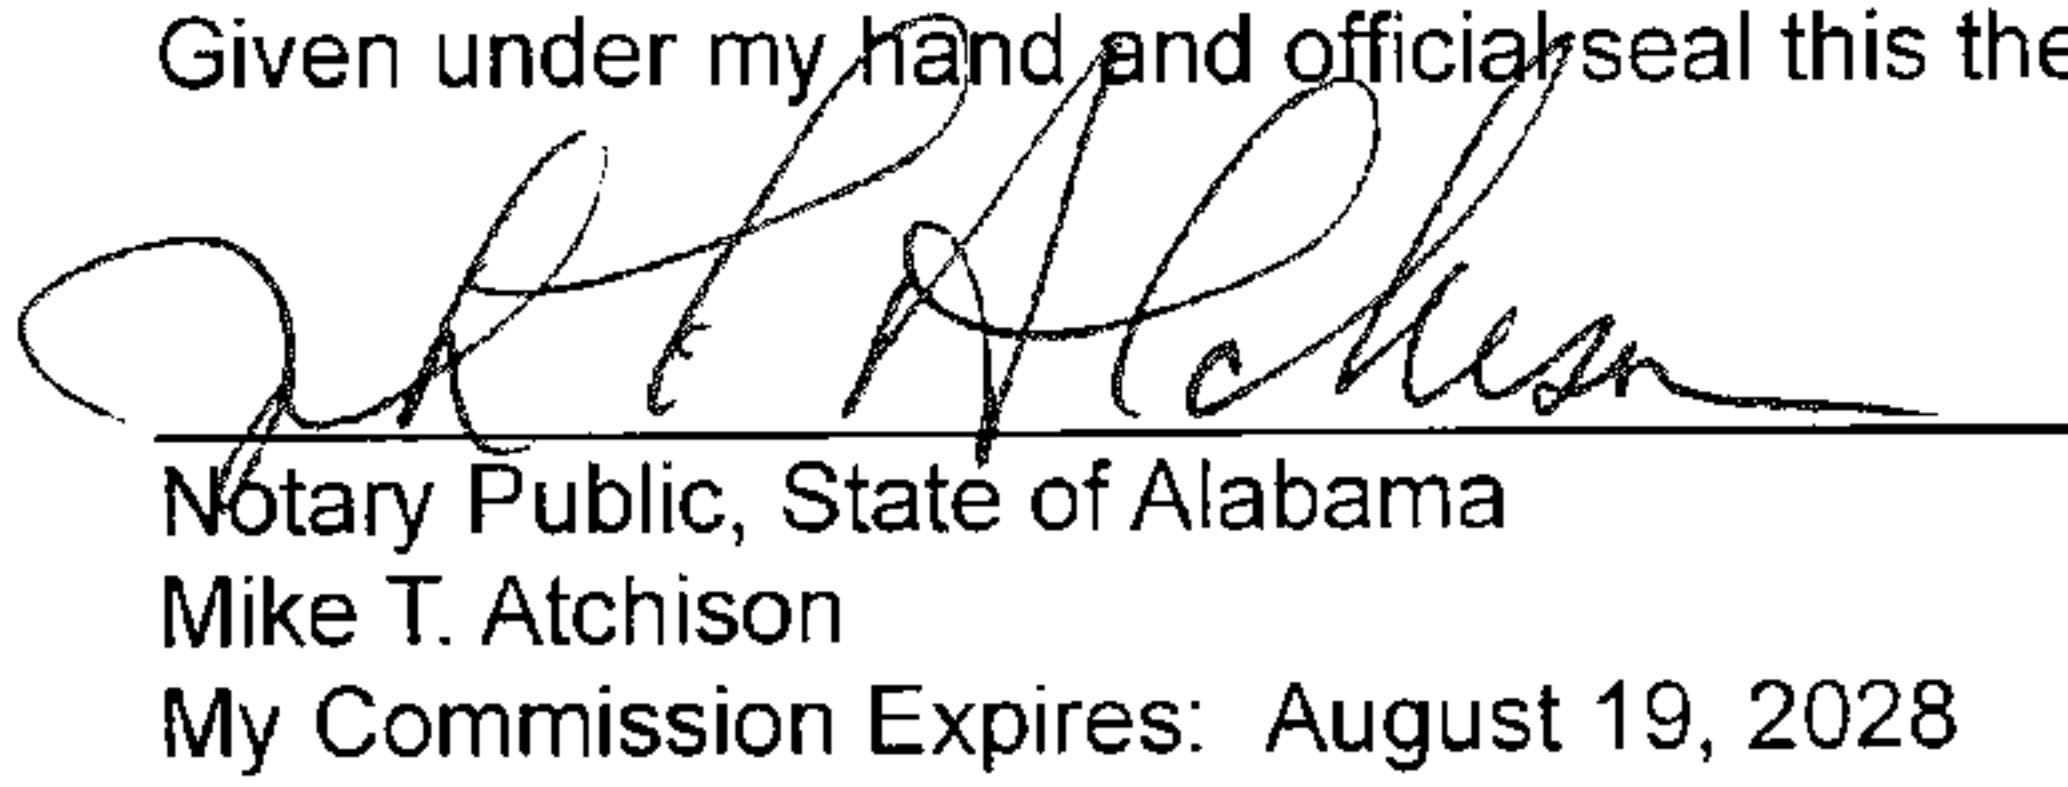 Given under my hand and official seal this the
Notary Public, State of Alabama
Mike T. Atchison
My Commission Expires: August 19, 2028